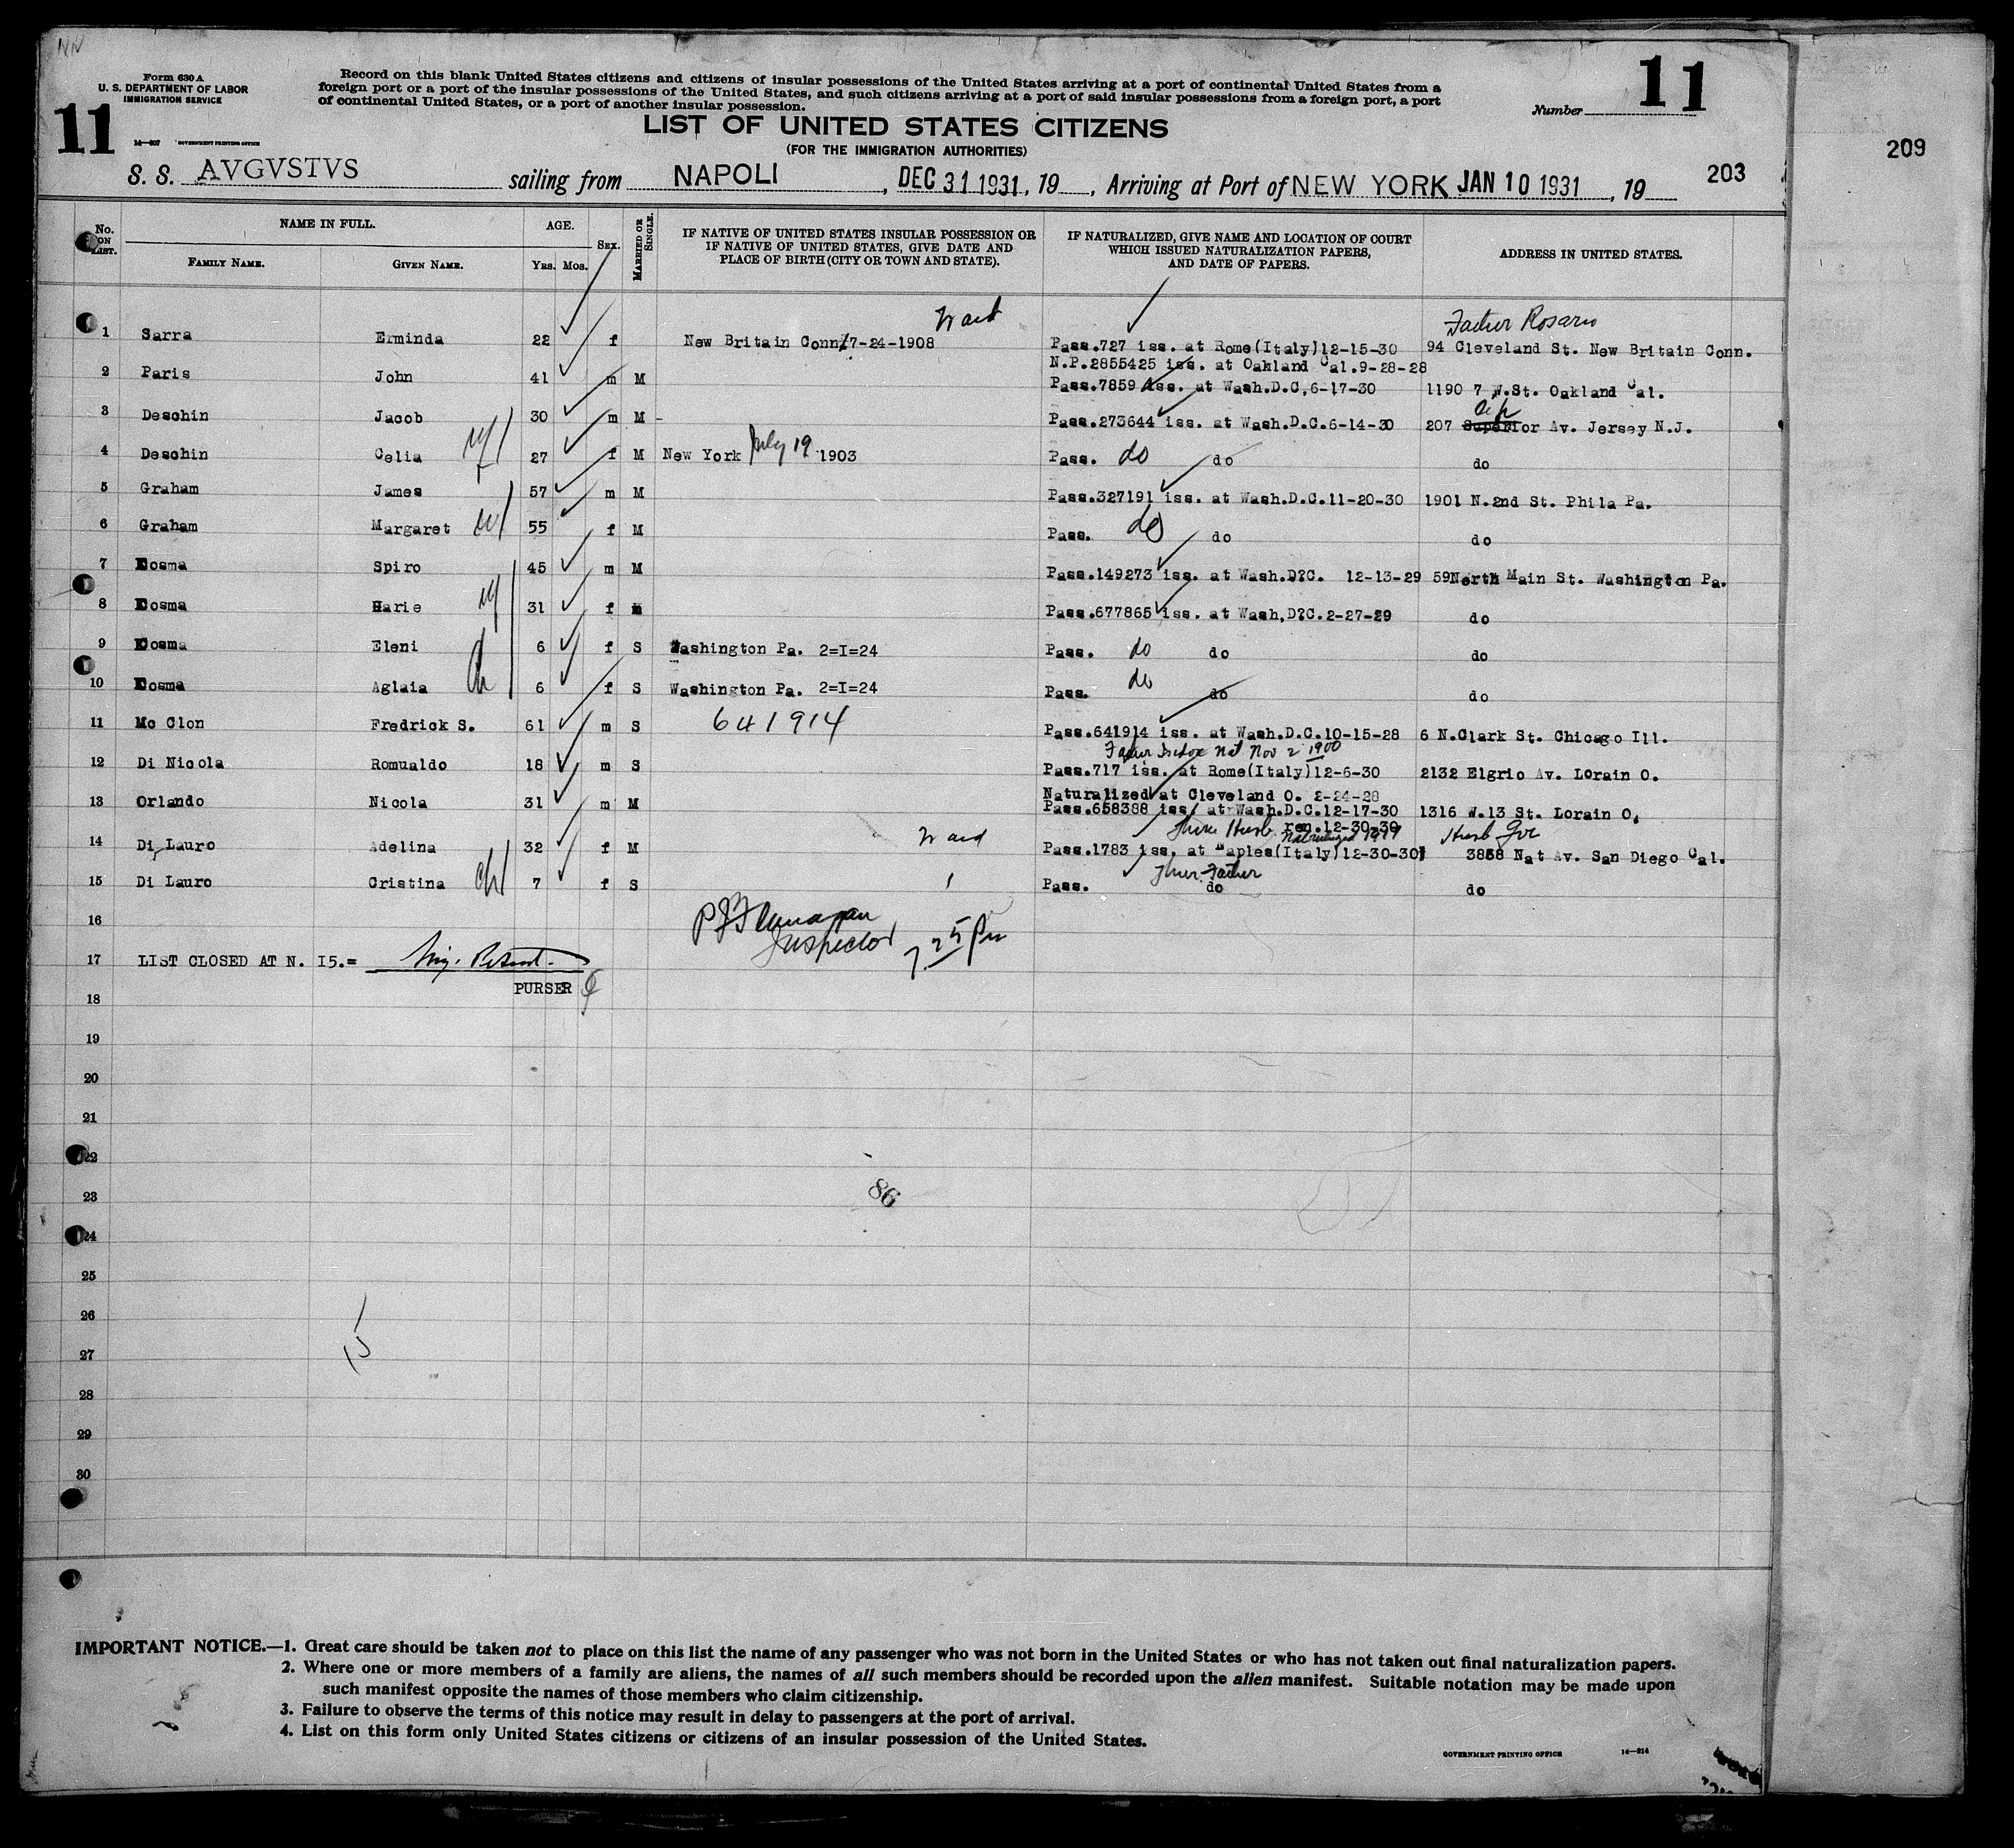 Form 630 A
U. S. DEPARTMENT OF LABOR
IMMIGRATION SERVICE
11
14—607 GOVERNMENT PRINTING OFFICE
Record on this blank United States citizens and citizens of insular possessions of the United States arriving at a port of continental United States from a
foreign port or a port of the insular possessions of the United States, and such citizens arriving at a port of said insular possessions from a foreign port, a port
of continental United States, or a port of another insular possession.
Number 11
LIST OF UNITED STATES CITIZENS
(FOR THE IMMIGRATION AUTHORITIES)
209
203
S. S. AVGVSTVS sailing from NAPOLI, DEC 31 1931, 19 , Arriving at Port of NEW YORK JAN 10 1931, 19
No. ON LIST. NAME IN FULL. FAMILY NAME. GIVEN NAME. AGE. YRS. MOS. SEX. MARRIED OR SINGLE. IF NATIVE OF UNITED STATES INSULAR POSSESSION OR IF NATIVE OF UNITED STATES, GIVE DATE AND PLACE OF BIRTH (CITY OR TOWN AND STATE). IF NATURALIZED, GIVE NAME AND LOCATION OF COURT WHICH ISSUED NATURALIZATION PAPERS, AND DATE OF PAPERS. ADDRESS IN UNITED STATES.
Father Rosario
1 Sarra Erminda 22 f New Britain Conn 7-24-1908 Pass.727 iss. at Rome(Italy)12-15-30 94 Cleveland St. New Britain Conn.
N.P.2855425 iss. at Oakland Cal.9-28-28
2 Paris John 41 m M Pass.7859 iss. at Wash.D.C,6-17-30 1190 7 W.St. Oakland Cal.
3 Deschin Jacob 30 m M - Pass.273644 iss. at Wash.D.C.6-14-30 207 Superior Av. Jersey N.J.
4 Deschin Celia 27 f M New York July 19 1903 Pass. do do do
5 Graham James 57 m M Pass.327191 iss. at Wash.D.C.11-20-30 1901 N.2nd St. Phila Pa.
6 Graham Margaret 55 f M Pass. do do do
7 Cosma Spiro 45 m M Pass.149273 iss. at Wash.D?C. 12-13-29 59North Main St. Washington Pa.
8 Cosma Harie 31 f m Pass.677865 iss. at Wash,D?C.2-27-29 do
9 Cosma Eleni 6 f S Washington Pa. 2=I=24 Pass. do do do
10 Cosma Aglaia 6 f S Washington Pa. 2=I=24 Pass. do do do
11 Mc Clon Fredrick S. 61 m S 641914 Pass.641914 iss. at Wash.D.C.10-15-28 6 N.Clark St. Chicago Ill.
Nov 2 1900
12 Di Nicola Romualdo 18 m S Pass.717 iss. at Rome(Italy)12-6-30 2132 Elgrio Av. Lorain O.
Naturalized at Cleveland O. 2-24-28
13 Orlando Nicola 31 m M Pass.658388 iss. at Wash.D.C.12-17-30 1316 W.13 St. Lorain O.
ren.12-30-30
14 Di Lauro Adelina 32 f M Pass.1783 iss. at Naples(Italy)12-30-30 3858 Nat Av. San Diego Cal.
Father
15 Di Lauro Cristina ch 7 f S Pass. do do
16
Inspector 7.25 Pm
17 LIST CLOSED AT N. I5.=
PURSER
18
19
20
21
22
23
86
24
25
26
27
15
28
29
30
IMPORTANT NOTICE.—1. Great care should be taken not to place on this list the name of any passenger who was not born in the United States or who has not taken out final naturalization papers.
2. Where one or more members of a family are aliens, the names of all such members should be recorded upon the alien manifest. Suitable notation may be made upon
such manifest opposite the names of those members who claim citizenship.
3. Failure to observe the terms of this notice may result in delay to passengers at the port of arrival.
4. List on this form only United States citizens or citizens of an insular possession of the United States.
GOVERNMENT PRINTING OFFICE 14—214